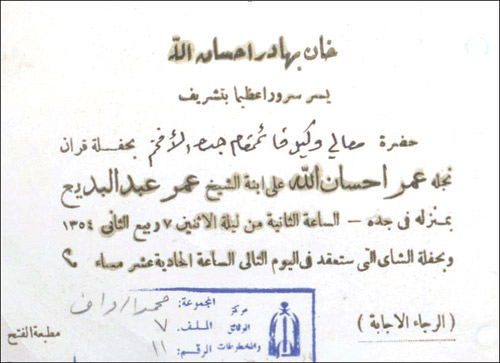 خان بهادر احسان الله
يسر سرورا عظيما بتشريف
حضرة معالي وكيل قائمقام جده الأفخم بحفلة قران
نجله عمر احسان الله على ابنة الشيخ عمر عبد البديع
بمنزله فى جده – الساعة الثانية من ليلة الاثنين ٧ ربيع الثانى ١٣٥٤
وبحفلة الشاى التى ستعقد فى اليوم التالى الساعة الحادية عشر مساء
( الرجاء الاجابة )
مطبعة الفتح
مركز الوثائق والمخطوطات
المجموعة:
الملف: ٧
الرقم: ١١